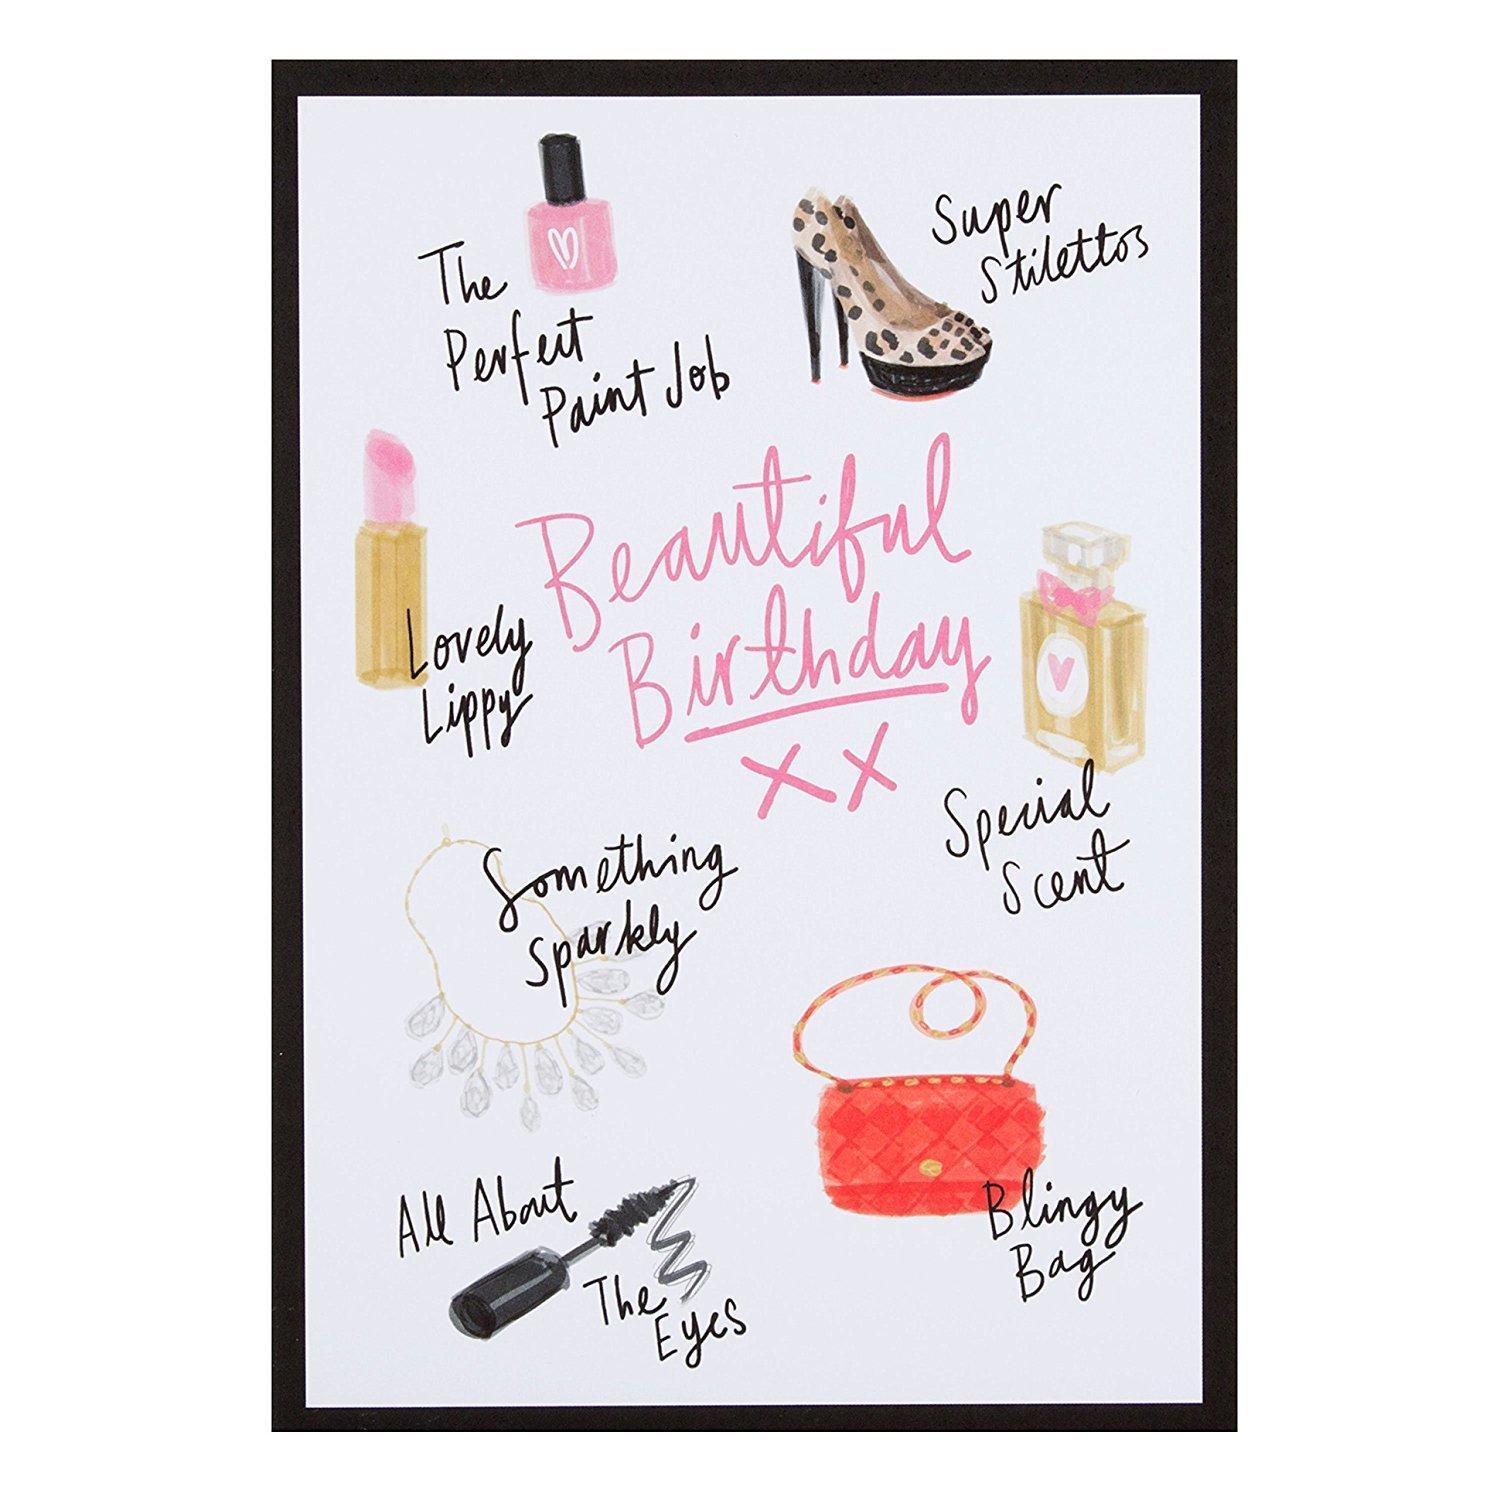 The
Perfect
Paint Job
Super
Stilettos
Beautiful
Birthday
xx
Lovely
Lippy
Special
Scent
Something
Sparkly
All About
The
Eyes
Blingy
Bag